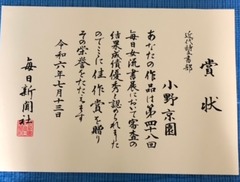 賞状
近代詩文書部
小野京園
あなたの作品は第四十八回
毎日女流書展において審査の
結果成績優秀と認められました
のでここに佳作賞を贈り
その栄誉をたたえます
令和六年七月十三日
毎日新聞社